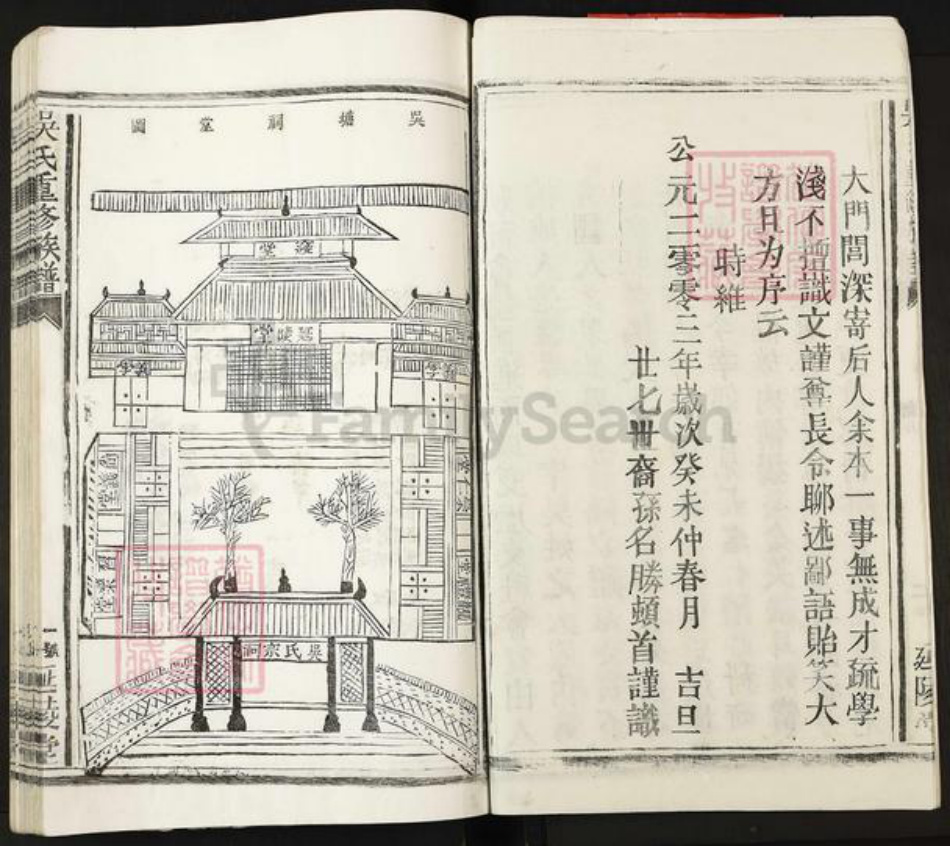 大門閭深寄后人余本一事無成才疏學
淺不揣識文謹尊長令聊述鄙語貽笑大
方且为序云
時維
公元二零零三年歲次癸未仲春月 吉旦
廿七世裔孫名勝頓首謹識
吳塘祠堂圖
延陵堂
義學
吳氏宗祠
吳氏重修族譜
FamilySearch